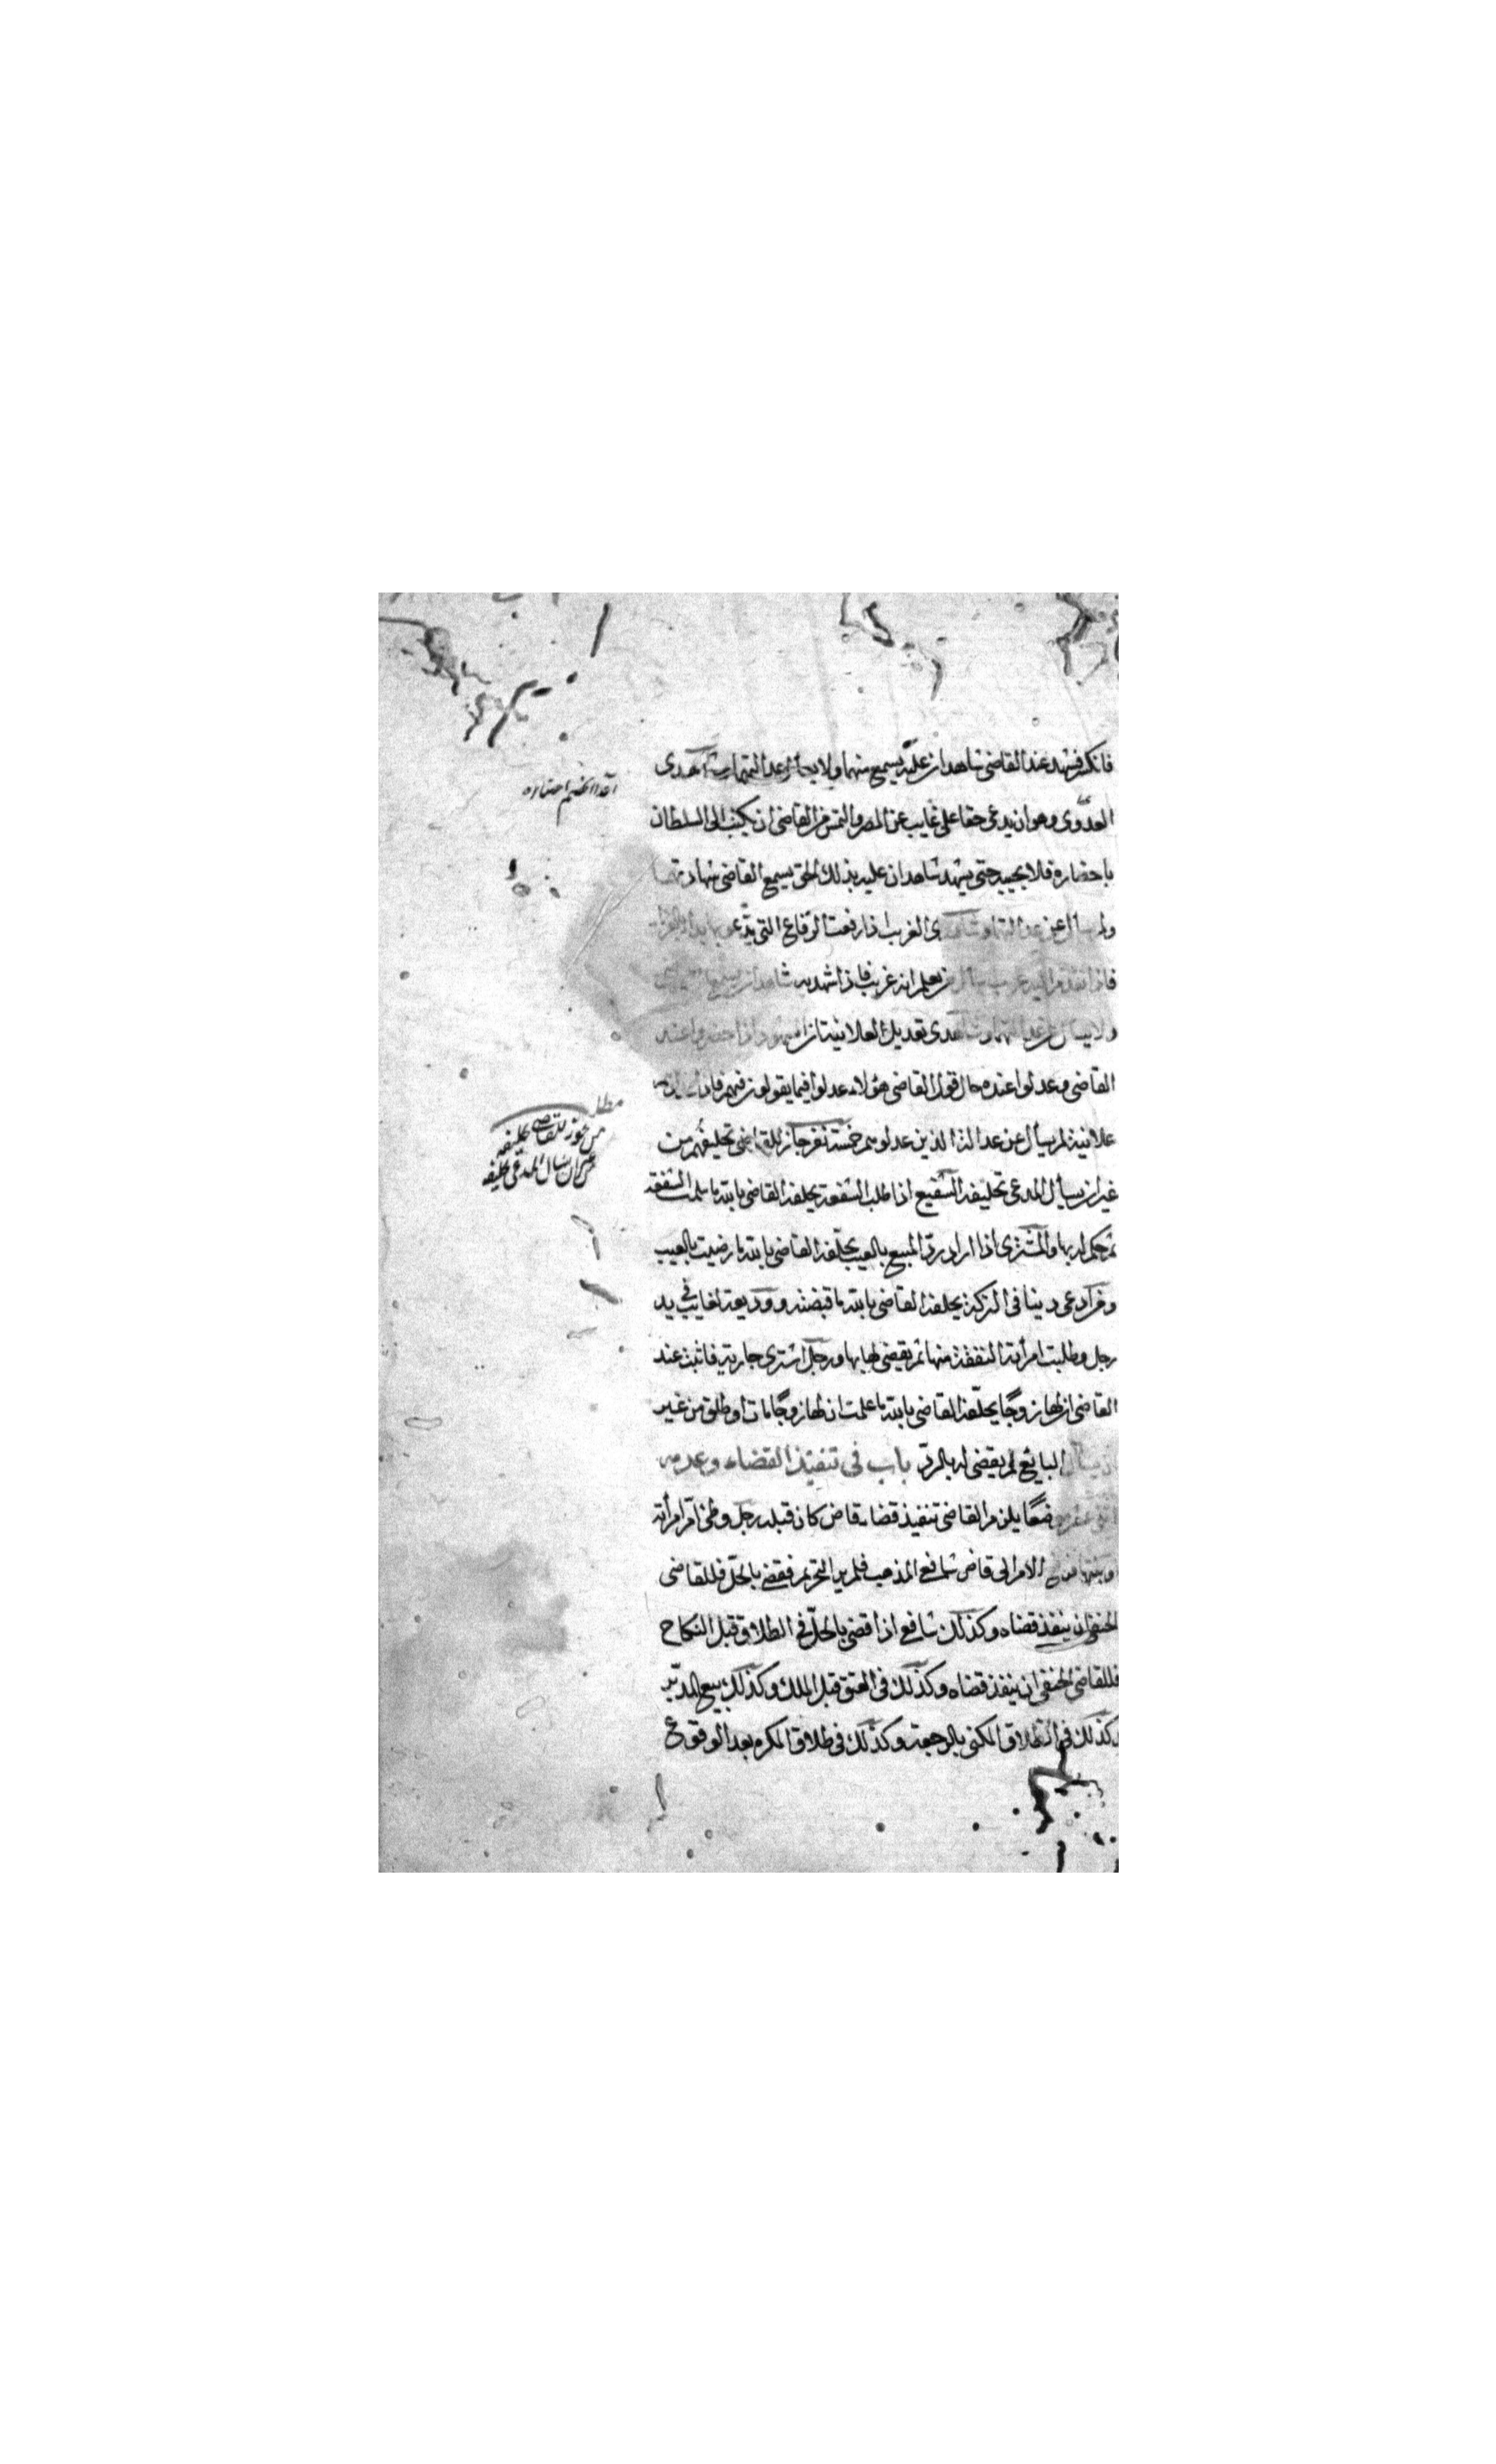 فانكر فشهد عند القاضي شاهدان عليه يسمع منهما ولا يسأل عن عدالتهما وشاهدى
العدوى وهو ان يدعى حقا على غايب عن المصر والتمس من القاضى ان يكتب الى السلطان
باحضاره فلا يجيبه حتى يشهد شاهدان عليه بذلك الحق يسمع القاضى شهادتهما
ولا يسأل عن عدالتهما وشاهدى الغريب اذا رفعت الرقاع التى يدعو بها
فاذا تقدم اليه غريب يسأل من يعلم انه غريب فاذا شهد به شاهدان يسمع
ولا يسأل عن عدالتهما وشاهدى تعديل العلانية ان الشهود اذا حضروا عند
القاضى وعدلوا عنده حال قول القاضى هؤلاء عدلوا فيما يقولون فهم
علانية لم يسأل عن عدالة الذين عدلوهم خمسة نفر جاز للقاضى تحليفهم من
غير ان يسأل المدعى تحليفه الشفيع اذا طلب الشفعة يحلفه القاضى بالله ما سلمت الشفعة
ثم حكم له بها والمشترى اذا اراد رد المبيع بالعيب يحلفه القاضى بالله ما رضيت بالعيب
ومن ادعى دينا فى التركة يحلفه القاضى بالله ما قبضته ووديعة لغايب فى يد
رجل وطلبت امرأته النفقة منها ثم يقضى لها بها ورجل اشترى جارية فاثبت عند
القاضى ان لها زوجا يحلفه القاضى بالله ما علمت ان لها زوجا مات او طلق من غير
ان يسأل البائع ثم يقضى له بالرد باب فى تنفيذ القضاء وعدمه
اثنى عشر موضعا يلزم القاضى تنفيذ قضاء قاض كان قبله رجل وطئ ام امرأته
او بنتها فرفع الامر الى قاض شافع المذهب فلم ير التحريم فقضى بالحل فللقاضى
الحنفى ان ينفذ قضاه وكذلك شافع اذا قضى بالحل فى الطلاق قبل النكاح
فللقاضى الحنفى ان ينفذ قضاه وكذلك فى العتق قبل الملك وكذلك بيع المدبر
وكذلك فى الطلاق المكنى بالرجعة وكذلك فى طلاق المكره بعد الوقوع
مطلب
من يجوز للقاضى تحليفه
من غير ان يسأل المدعى تحليفه